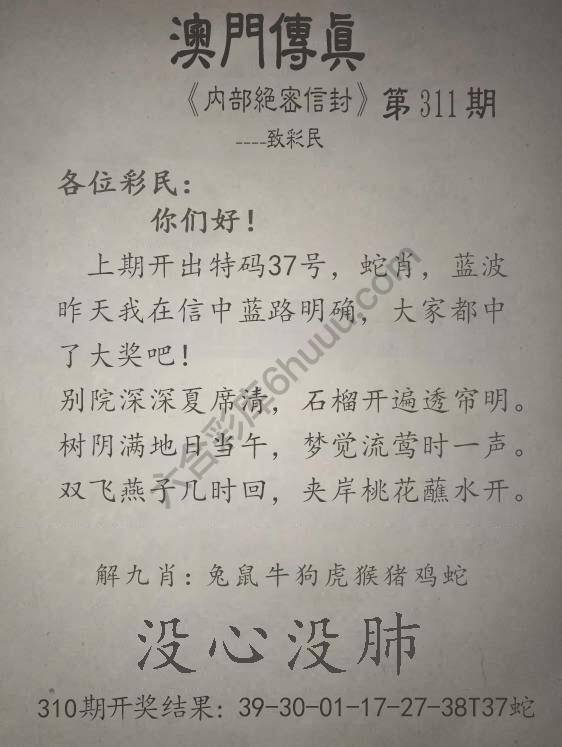 澳門傳眞
《内部絕密信封》第311期
----致彩民
各位彩民：
你们好！
上期开出特码37号，蛇肖，蓝波
昨天我在信中蓝路明确，大家都中
了大奖吧！
别院深深夏席清，石榴开遍透帘明。
树阴满地日当午，梦觉流莺时一声。
双飞燕子几时回，夹岸桃花蘸水开。
六合彩库6huuu.com
解九肖：兔鼠牛狗虎猴猪鸡蛇
没心没肺
310期开奖结果：39-30-01-17-27-38T37蛇